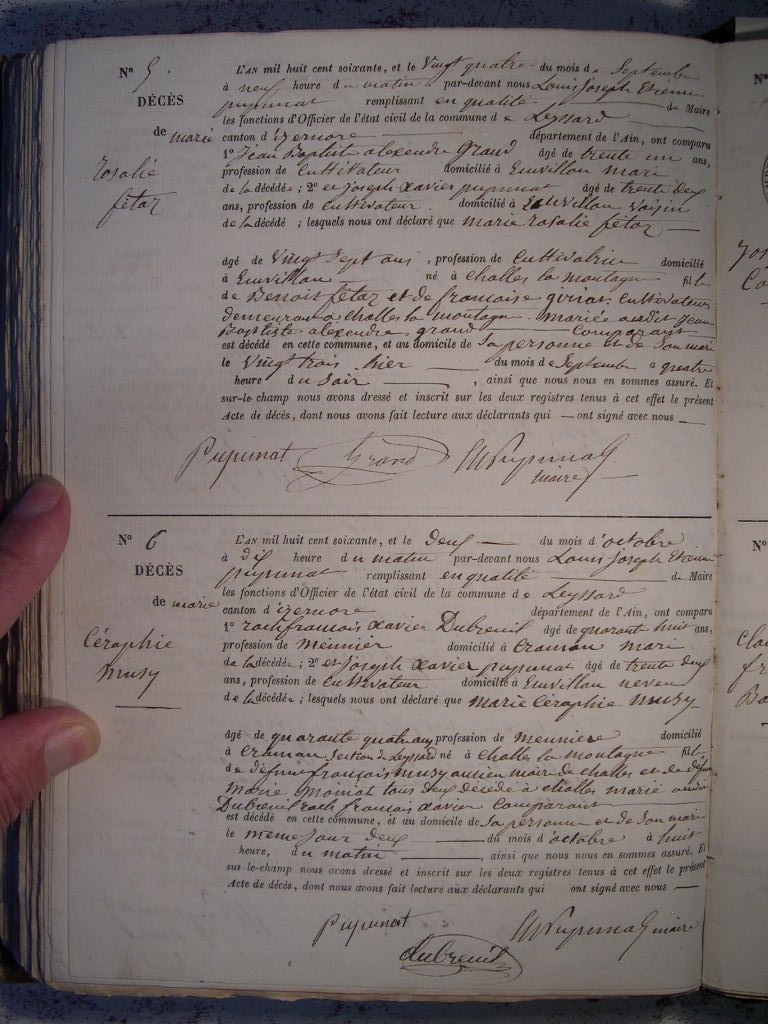 N° 5.
DÉCÈS
de marie
rosalie
fétaz
L'AN mil huit cent soixante, et le Vingt quatre du mois de Septembre
à neuf heure du matin par-devant nous Louis joseph Etienne
pupunat remplissant en qualité de Maire
les fonctions d'Officier de l'état civil de la commune de Leyssard
canton d'izernore département de l'Ain, ont comparu
1° Jean Baptiste alexendre Grand âgé de trente un ans,
profession de Cultivateur domicilié à Emvillon mari
de la décédée; 2° et joseph xavier pupunat âgé de trente deux
ans, profession de Cultivateur domicilié à Emvillon Voisin
de la décédé ; lesquels nous ont déclaré que marie rosalie fétaz
âgé de Vingt Sept ans, profession de Cultivatrice domicilié
à Emvillon né à challes la montagne fil
de Benoit fétaz et de francoise Cultivateurs
demeurant à challes la montagne. mariée audit Jean
Baptiste alexendre grand Comparant
est décédé en cette commune, et au domicile de Sa personne et de Son mari
le Vingt trois hier du mois de Septembre à quatre
heure du Soir, ainsi que nous nous en sommes assuré. Et
sur-le-champ nous avons dressé et inscrit sur les deux registres tenus à cet effet le présent
Acte de décès, dont nous avons fait lecture aux déclarants qui — ont signé avec nous —
Pupunat Grand Pupunat
maire
N° 6
DÉCÈS
de marie
Céraphie
musy
L'AN mil huit cent soixante, et le Deux du mois d'octobre
à dix heure du matin par-devant nous Louis joseph Etienne
pupunat remplissant en qualité de Maire
les fonctions d'Officier de l'état civil de la commune de Leyssard
canton d'izernore département de l'Ain, ont comparu
1° roch francois xavier Dubreuil âgé de quarant huit ans,
profession de meunier domicilié à Craman mari
de la décédée; 2° et joseph xavier pupunat âgé de trente deux
ans, profession de Cultivateur domicilié à Emvillon neveu
de la décédée; lesquels nous ont déclaré que marie Céraphie musy
âgé de quarante quatre ans profession de meunière domicilié
à Craman Section de Leyssard né à challes la montagne fil
de défunt françois musy ancien maire de challes et de défunte
marie moiriat tous deux décédé à challes marié audit
Dubreuil roch francois xavier Comparant
est décédé en cette commune, et au domicile de Sa personne et de Son mari
le meme jour deux du mois d'octobre à huit
heure, du matin, ainsi que nous nous en sommes assuré. Et
sur-le-champ nous avons dressé et inscrit sur les deux registres tenus à cet effet le présent
Acte de décès, dont nous avons fait lecture aux déclarants qui ont signé avec nous —
pupunat Pupunat maire
dubreuil